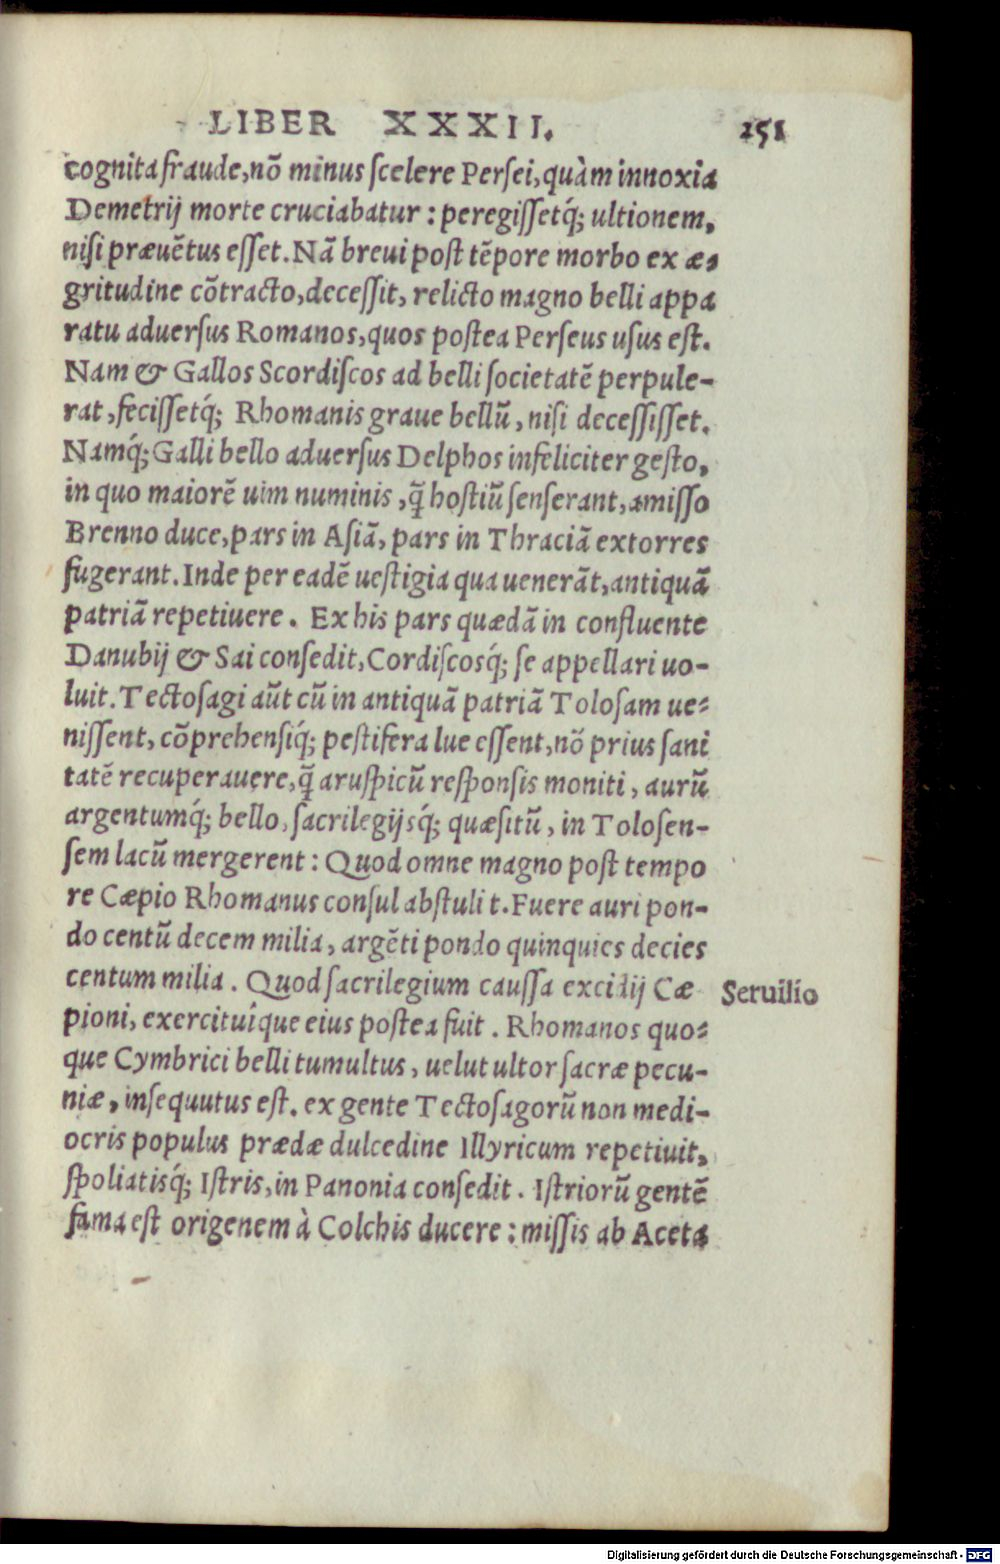 LIBER XXXII. 251
cognita fraude, nõ minus scelere Persei, quàm innoxia
Demetrij morte cruciabatur : peregissetq́; ultionem,
nisi præuẽtus esset. Nã breui post tẽpore morbo ex æ-
gritudine cõtracto, decessit, relicto magno belli appa
ratu aduersus Romanos, quos postea Perseus usus est.
Nam & Gallos Scordiscos ad belli societatẽ perpule-
rat, fecissetq́; Rhomanis graue bellũ, nisi decessisset.
Namq́; Galli bello aduersus Delphos infeliciter gesto,
in quo maiorẽ uim numinis, q̃ hostiũ senserant, amisso
Brenno duce, pars in Asiã, pars in Thraciã extorres
fugerant. Inde per eadẽ uestigia qua uenerãt, antiquã
patriã repetiuere. Ex his pars quædã in confluente
Danubij & Sai consedit, Cordiscosq́; se appellari uo-
luit. Tectosagi aũt cũ in antiquã patriã Tolosam ue-
nissent, cõprehensiq́; pestifera lue essent, nõ prius sani
tatẽ recuperauere, q̃ aruspicũ responsis moniti, aurũ
argentumq́; bello, sacrilegijsq́; quæsitũ, in Tolosen-
sem lacũ mergerent : Quod omne magno post tempo
re Cæpio Rhomanus consul abstulit. Fuere auri pon-
do centũ decem milia, argẽti pondo quinquies decies
centum milia. Quod sacrilegium caussa excidij Cæ
Seruilio
pioni, exercituíque eius postea fuit. Rhomanos quo-
que Cymbrici belli tumultus, uelut ultor sacræ pecu-
niæ, insequutus est. ex gente Tectosagorũ non medi-
ocris populus prædæ dulcedine Illyricum repetiuit,
spoliatisq́; Istris, in Panonia consedit. Istriorũ gentẽ
fama est origenem à Colchis ducere : missis ab Aceta
Digitalisierung gefördert durch die Deutsche Forschungsgemeinschaft - DFG